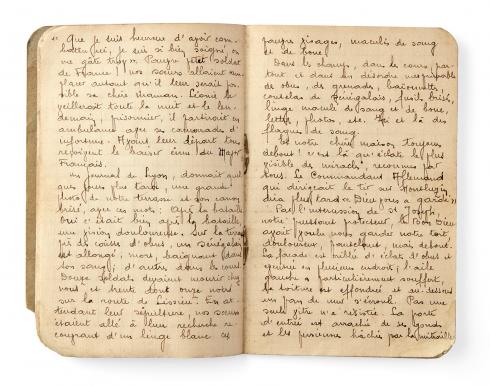 " Que je suis heureux d'avoir com-
battu ici, je suis si bien soigné, on
me gâte trop ". Pauvre petit soldat
de France ! nos sœurs allaient rem-
placer autant qu'il leur serait pos-
sible sa chère maman. Léonie le
veillerait toute la nuit et le len-
demain, prisonnier, il partirait en
ambulance avec ses camarades d'
infortune. Avant leur départ tous
reçoivent le baiser ému du Major
Français.
Un journal de Lyon, donnait quel-
ques jours plus tard, une grande
photo de notre terrasse et son canon
brisé, avec ces mots : Après la bataille
Oui c'était bien après la bataille,
une vision douloureuse. Sur la terrasse
de obus, un sénégalais
est allongé, mort, baignant dans
son sang ; d'autres dans la cour.
Douze soldats devaient mourir chez
nous, et trente dont onze noirs
sur la route de Lissieu. En at-
tendant leur sépulture, nos sœurs
étaient allé à leur recherche re-
couvrant d'un linge blanc ces
pauvres visages, maculés de sang
et de boue.
Dans les champs, dans les cours, par-
tout et dans un désordre inexprimable
des obus, des grenades, baïonnettes,
coutelas de Sénégalais, fusils brisés,
linge maculé de sang et de boue,
lettres, photos, etc. Ici et là des
flaques de sang.
Et notre chère maison toujours
debout ! c'est là qu'éclate le plus
visible des miracles, reconnu par
tous. Le Commandant Allemand
qui dirigeait le tir sur Montluzin
dira plus tard " Dieu vous a gardés ".
Par l'intercession de St Joseph,
notre puissant protecteur, le Bon Dieu
avait voulu nous garder notre toit,
douloureux, pantelant, mais debout.
La façade est criblée d'éclats d'obus et
en plusieurs endroits ; l'aile
gauche a particulièrement souffert,
la toiture est effondrée et au-dessous
un pan de mur s'écroule. Pas une
seule vitre n'a résisté. La porte
d'entrée est arrachée de ses gonds
et les persiennes hachées par la mitraille